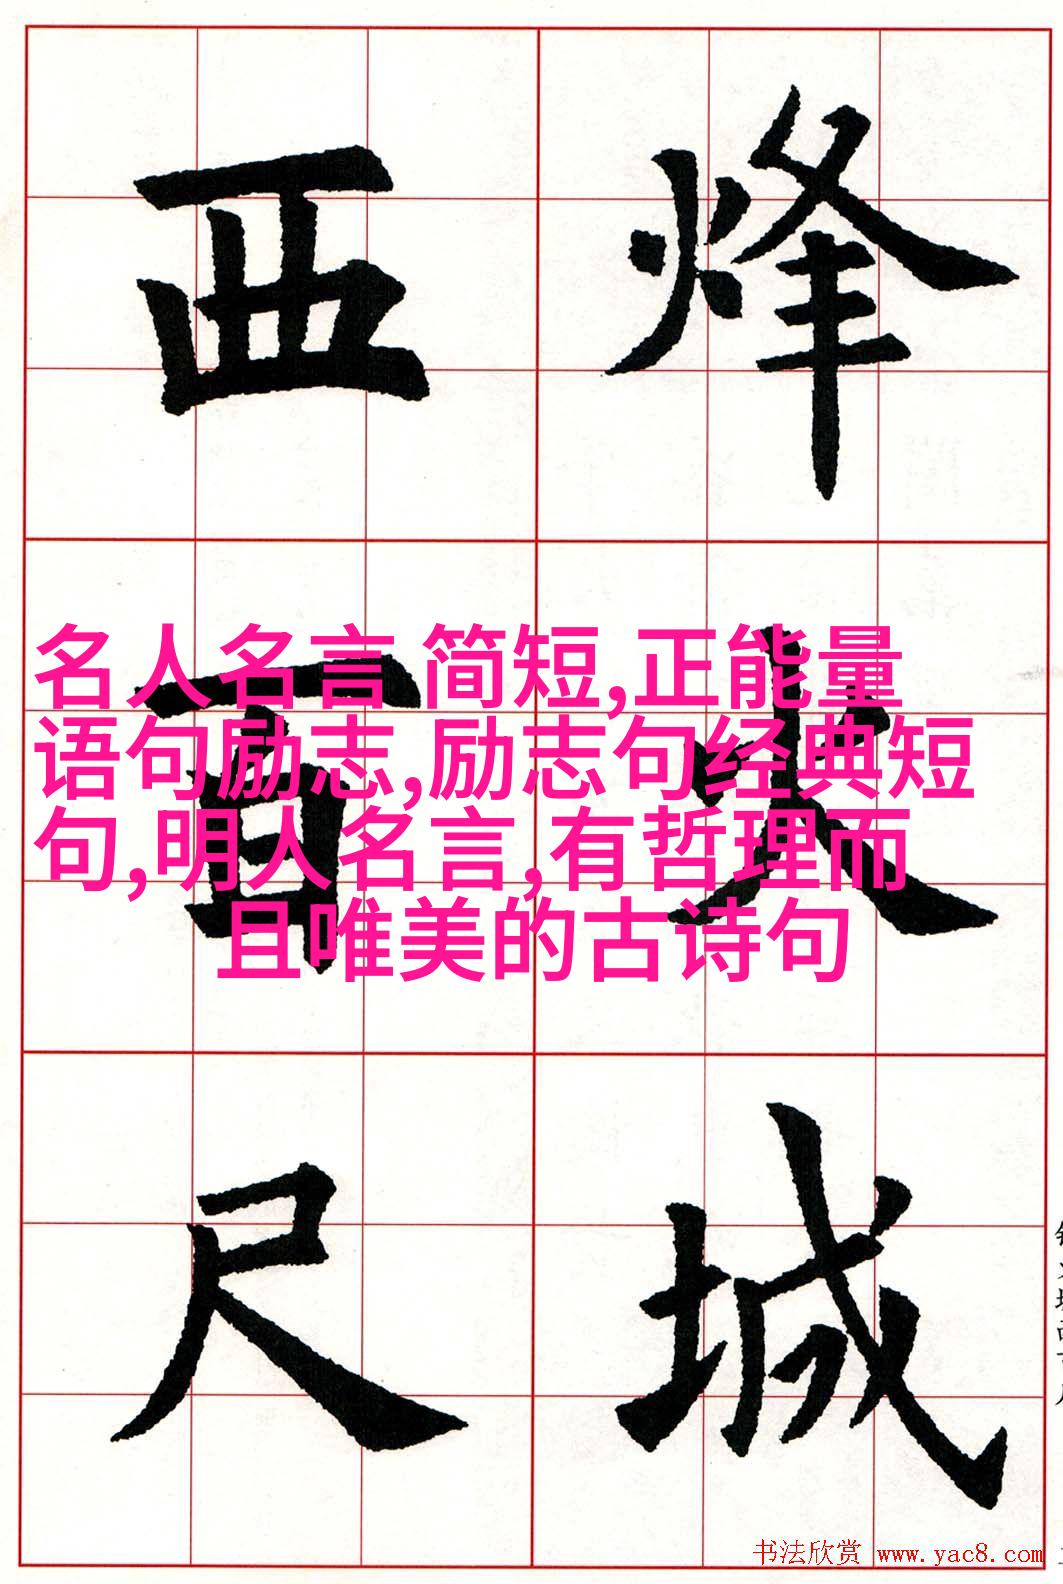 烽火城
西百尺
名人名言 简短,正能量
语句励志,励志句经典短
句,明人名言,有哲理而
且唯美的古诗句
书法欣赏 www.yac8.com